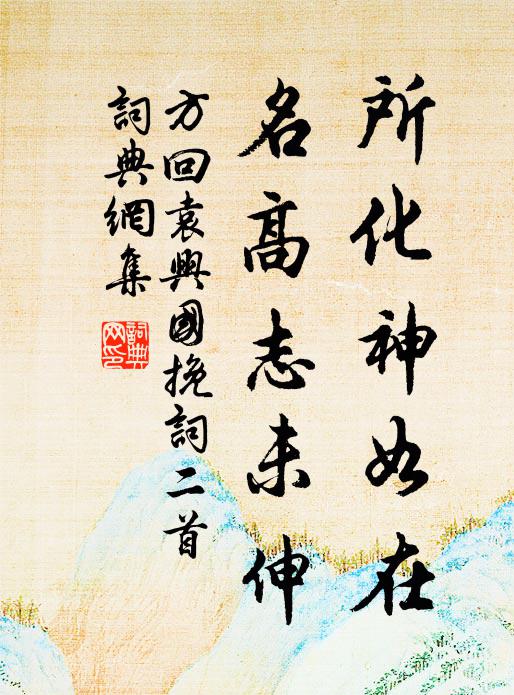 所化神如在
名高志未伸
方回袁興國挽詞二首
詞典網集
詞典网印